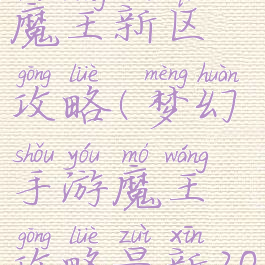 魔王新区
gōng lüè mèng huàn
攻略(梦幻
shǒu yóu mó wáng
手游魔王
gōng lüè zuì xīn
攻略最新20